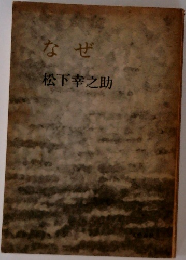 なぜ
松下幸之助